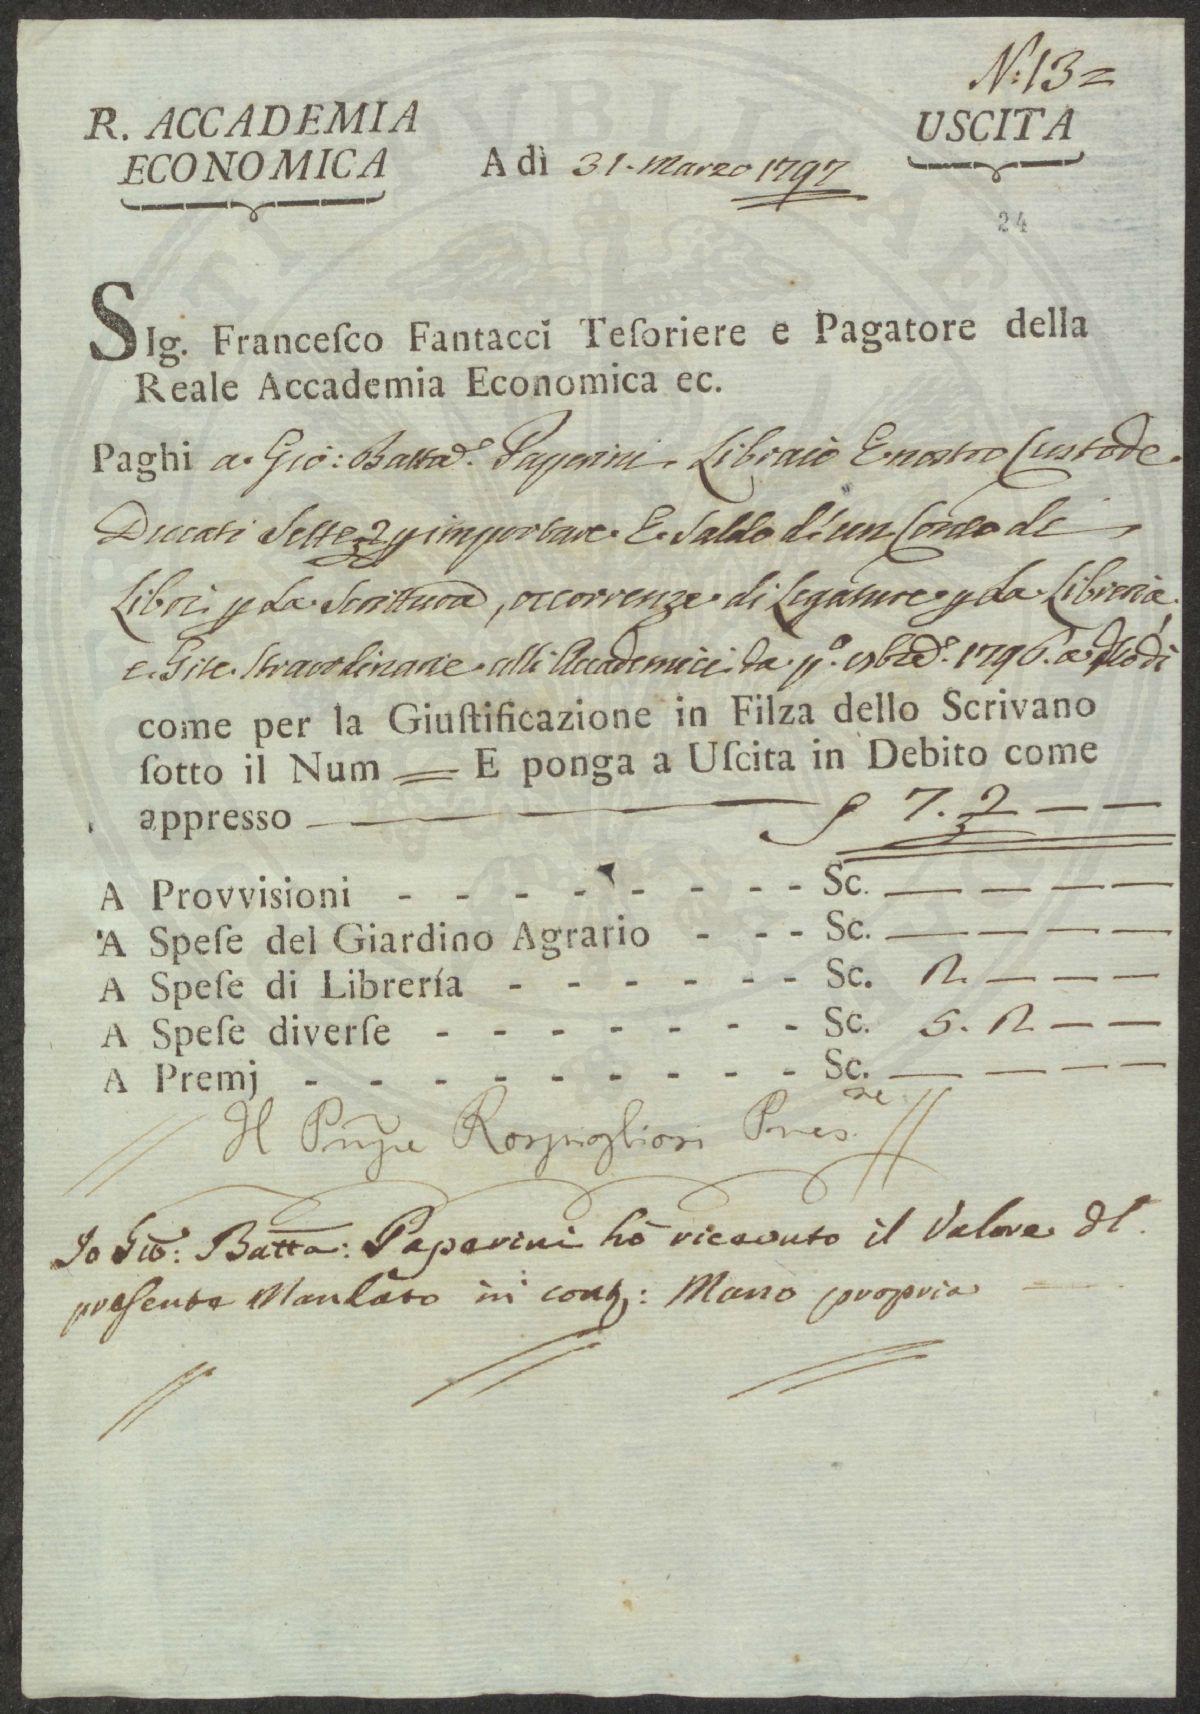 N.° 13 =
R. ACCADEMIA
ECONOMICA
A dì 31. Marzo 1797
USCITA
24
SIg. Franceſco Fantacci Teſoriere e Pagatore della
Reale Accademia Economica ec.
Paghi a Gio: Batta. Paperini Libraio E nostro Custode
Ducati Sette 2 p importare E Saldo d'un Conto di
Libri p La Scrittura, occorrenze di Legature p La Libreria,
e Gite straordinarie alli Accademici da p.° 1796. a
come per la Giuſtificazione in Filza dello Scrivano
ſotto il Num = E ponga a Uſcita in Debito come
appresso 7. 2 — —
A Provvisioni - - - - - - - - Sc. — — — —
A Speſe del Giardino Agrario - - - Sc. — — — —
A Speſe di Librería - - - - - - Sc. 2. — — —
A Speſe diverſe - - - - - - - Sc. 5. 2 — —
A Premj - - - - - - - - - Sc. — — — —
Il Prñpe Rospigliosi Pres.
Io Gio: Batta: Paperini hò riceuuto il Valore dl
preſente Mandato in cont: Mano propria